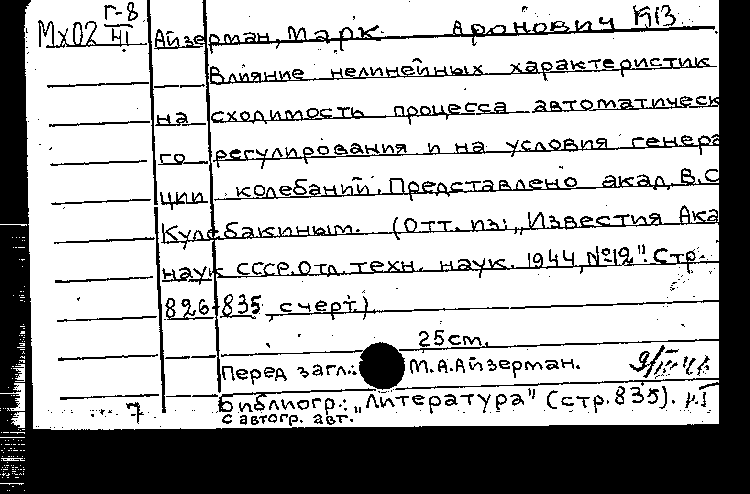 Мх02 Г-8/VI Айзерман, Марк Аронович К13
Влияние нелинейных характеристик
на сходимость процесса автоматическ
го регулирования и на условия генера
ции колебаний. Представлено акад. В.С
Кулебакиным. (Отт. из: „Известия Ака
наук СССР. Отд. техн. наук. 1944, №12". Стр.
826-835, с черт.).
25cm.
Перед загл.: М.А.Айзерман.
7 Библиогр.: „Литература" (стр. 835).
с автогр. авт.